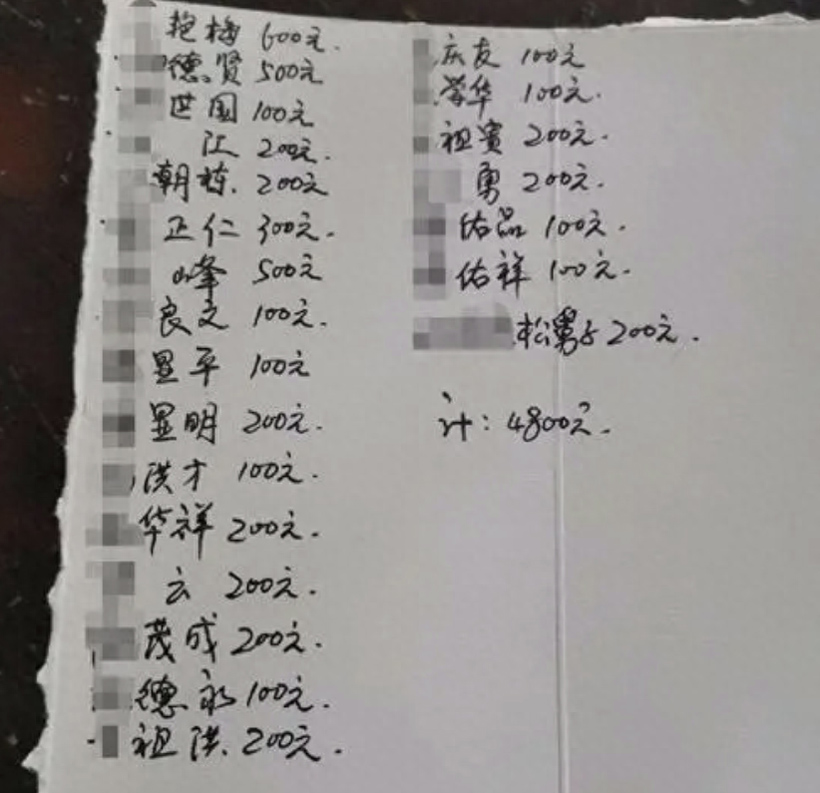 艳梅 600元.
德贤 500元
世国 100元
江 200元.
朝栋. 200元
正仁 300元.
峰 500元
良文 100元.
显平 100元
显明 200元.
洪才 100元.
华祥 200元.
云 200元.
茂成 200元.
德永 100元.
祖洪. 200元.
庆友 100元
荣华 100元.
祖宾 200元.
勇 200元.
佑品 100元.
佑祥 100元.
松 200元.
计: 4800元.